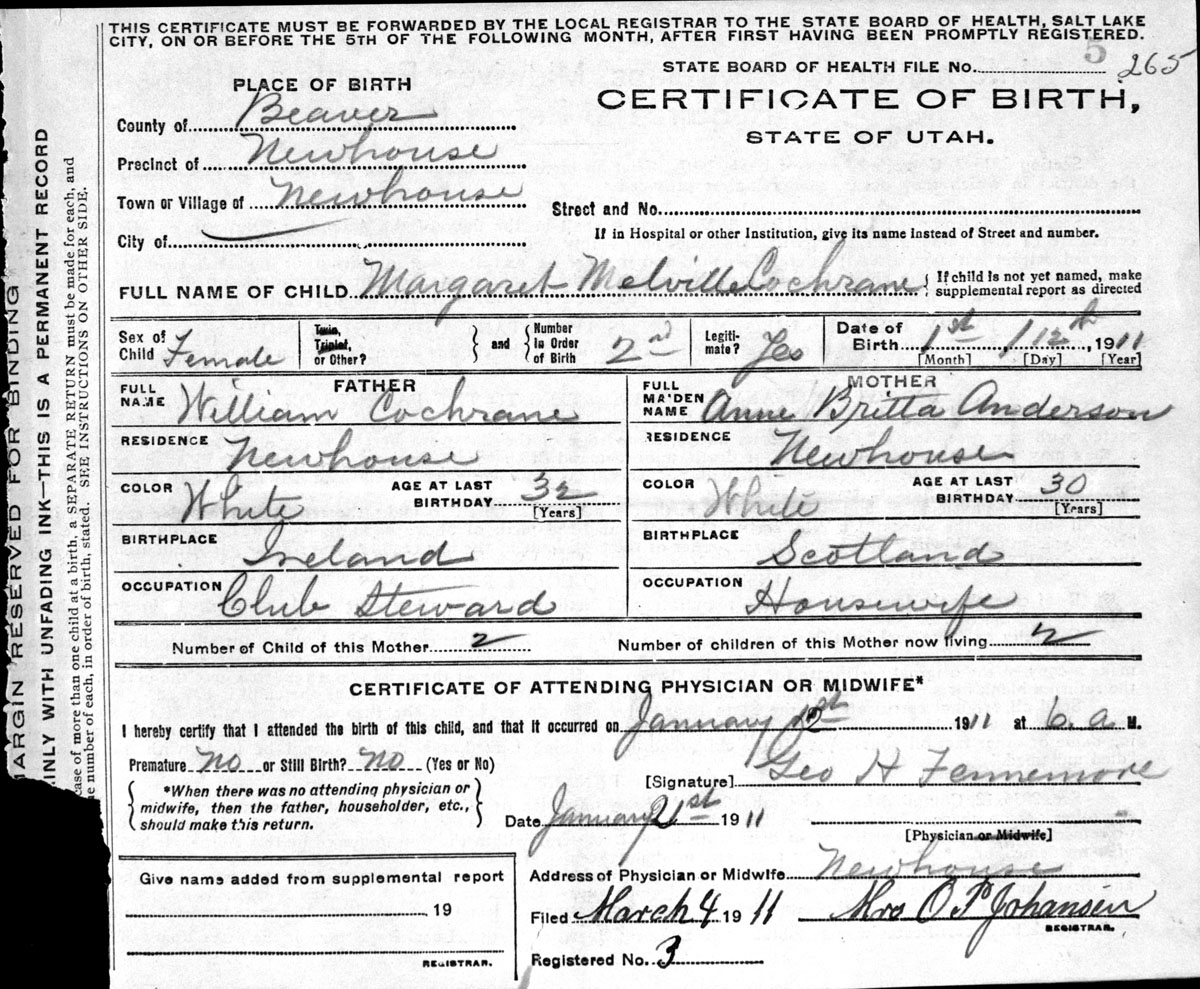 THIS CERTIFICATE MUST BE FORWARDED BY THE LOCAL REGISTRAR TO THE STATE BOARD OF HEALTH, SALT LAKE
CITY, ON OR BEFORE THE 5TH OF THE FOLLOWING MONTH, AFTER FIRST HAVING BEEN PROMPTLY REGISTERED.
STATE BOARD OF HEALTH FILE No. 5 265
PLACE OF BIRTH
CERTIFICATE OF BIRTH,
STATE OF UTAH.
County of Beaver
Precinct of Newhouse
Town or Village of Newhouse
Street and No.
City of
If in Hospital or other Institution, give its name instead of Street and number.
FULL NAME OF CHILD Margaret Melville Cochrane { If child is not yet named, make supplemental report as directed
Sex of Child Female Twin, Triplet, or Other? } and { Number in Order of Birth 2nd Legitimate? Yes Date of Birth 1st / 12th, 1911
[Month] [Day] [Year]
FATHER
MOTHER
FULL NAME William Cochrane
FULL MAIDEN NAME Anne Britta Anderson
RESIDENCE Newhouse
RESIDENCE Newhouse
COLOR White AGE AT LAST BIRTHDAY 32 [Years]
COLOR White AGE AT LAST BIRTHDAY 30 [Years]
BIRTHPLACE Ireland
BIRTHPLACE Scotland
OCCUPATION Club Steward
OCCUPATION Housewife
Number of Child of this Mother 2 Number of children of this Mother now living 2
CERTIFICATE OF ATTENDING PHYSICIAN OR MIDWIFE*
I hereby certify that I attended the birth of this child, and that it occurred on January 12st 1911 at 6. a M.
Premature No or Still Birth? No (Yes or No)
[Signature] Geo H Fennemore
*When there was no attending physician or
midwife, then the father, householder, etc.,
should make this return.
Date January 21st 1911
[Physician or Midwife]
Give name added from supplemental report
19
REGISTRAR.
Address of Physician or Midwife Newhouse
Filed March 4 1911 Mrs O P Johansen
REGISTRAR.
Registered No. 3
MARGIN RESERVED FOR BINDING
INLY WITH UNFADING INK—THIS IS A PERMANENT RECORD
case of more than one child at a birth, a SEPARATE RETURN must be made for each, and
he number of each, in order of birth, stated. SEE INSTRUCTIONS ON OTHER SIDE.